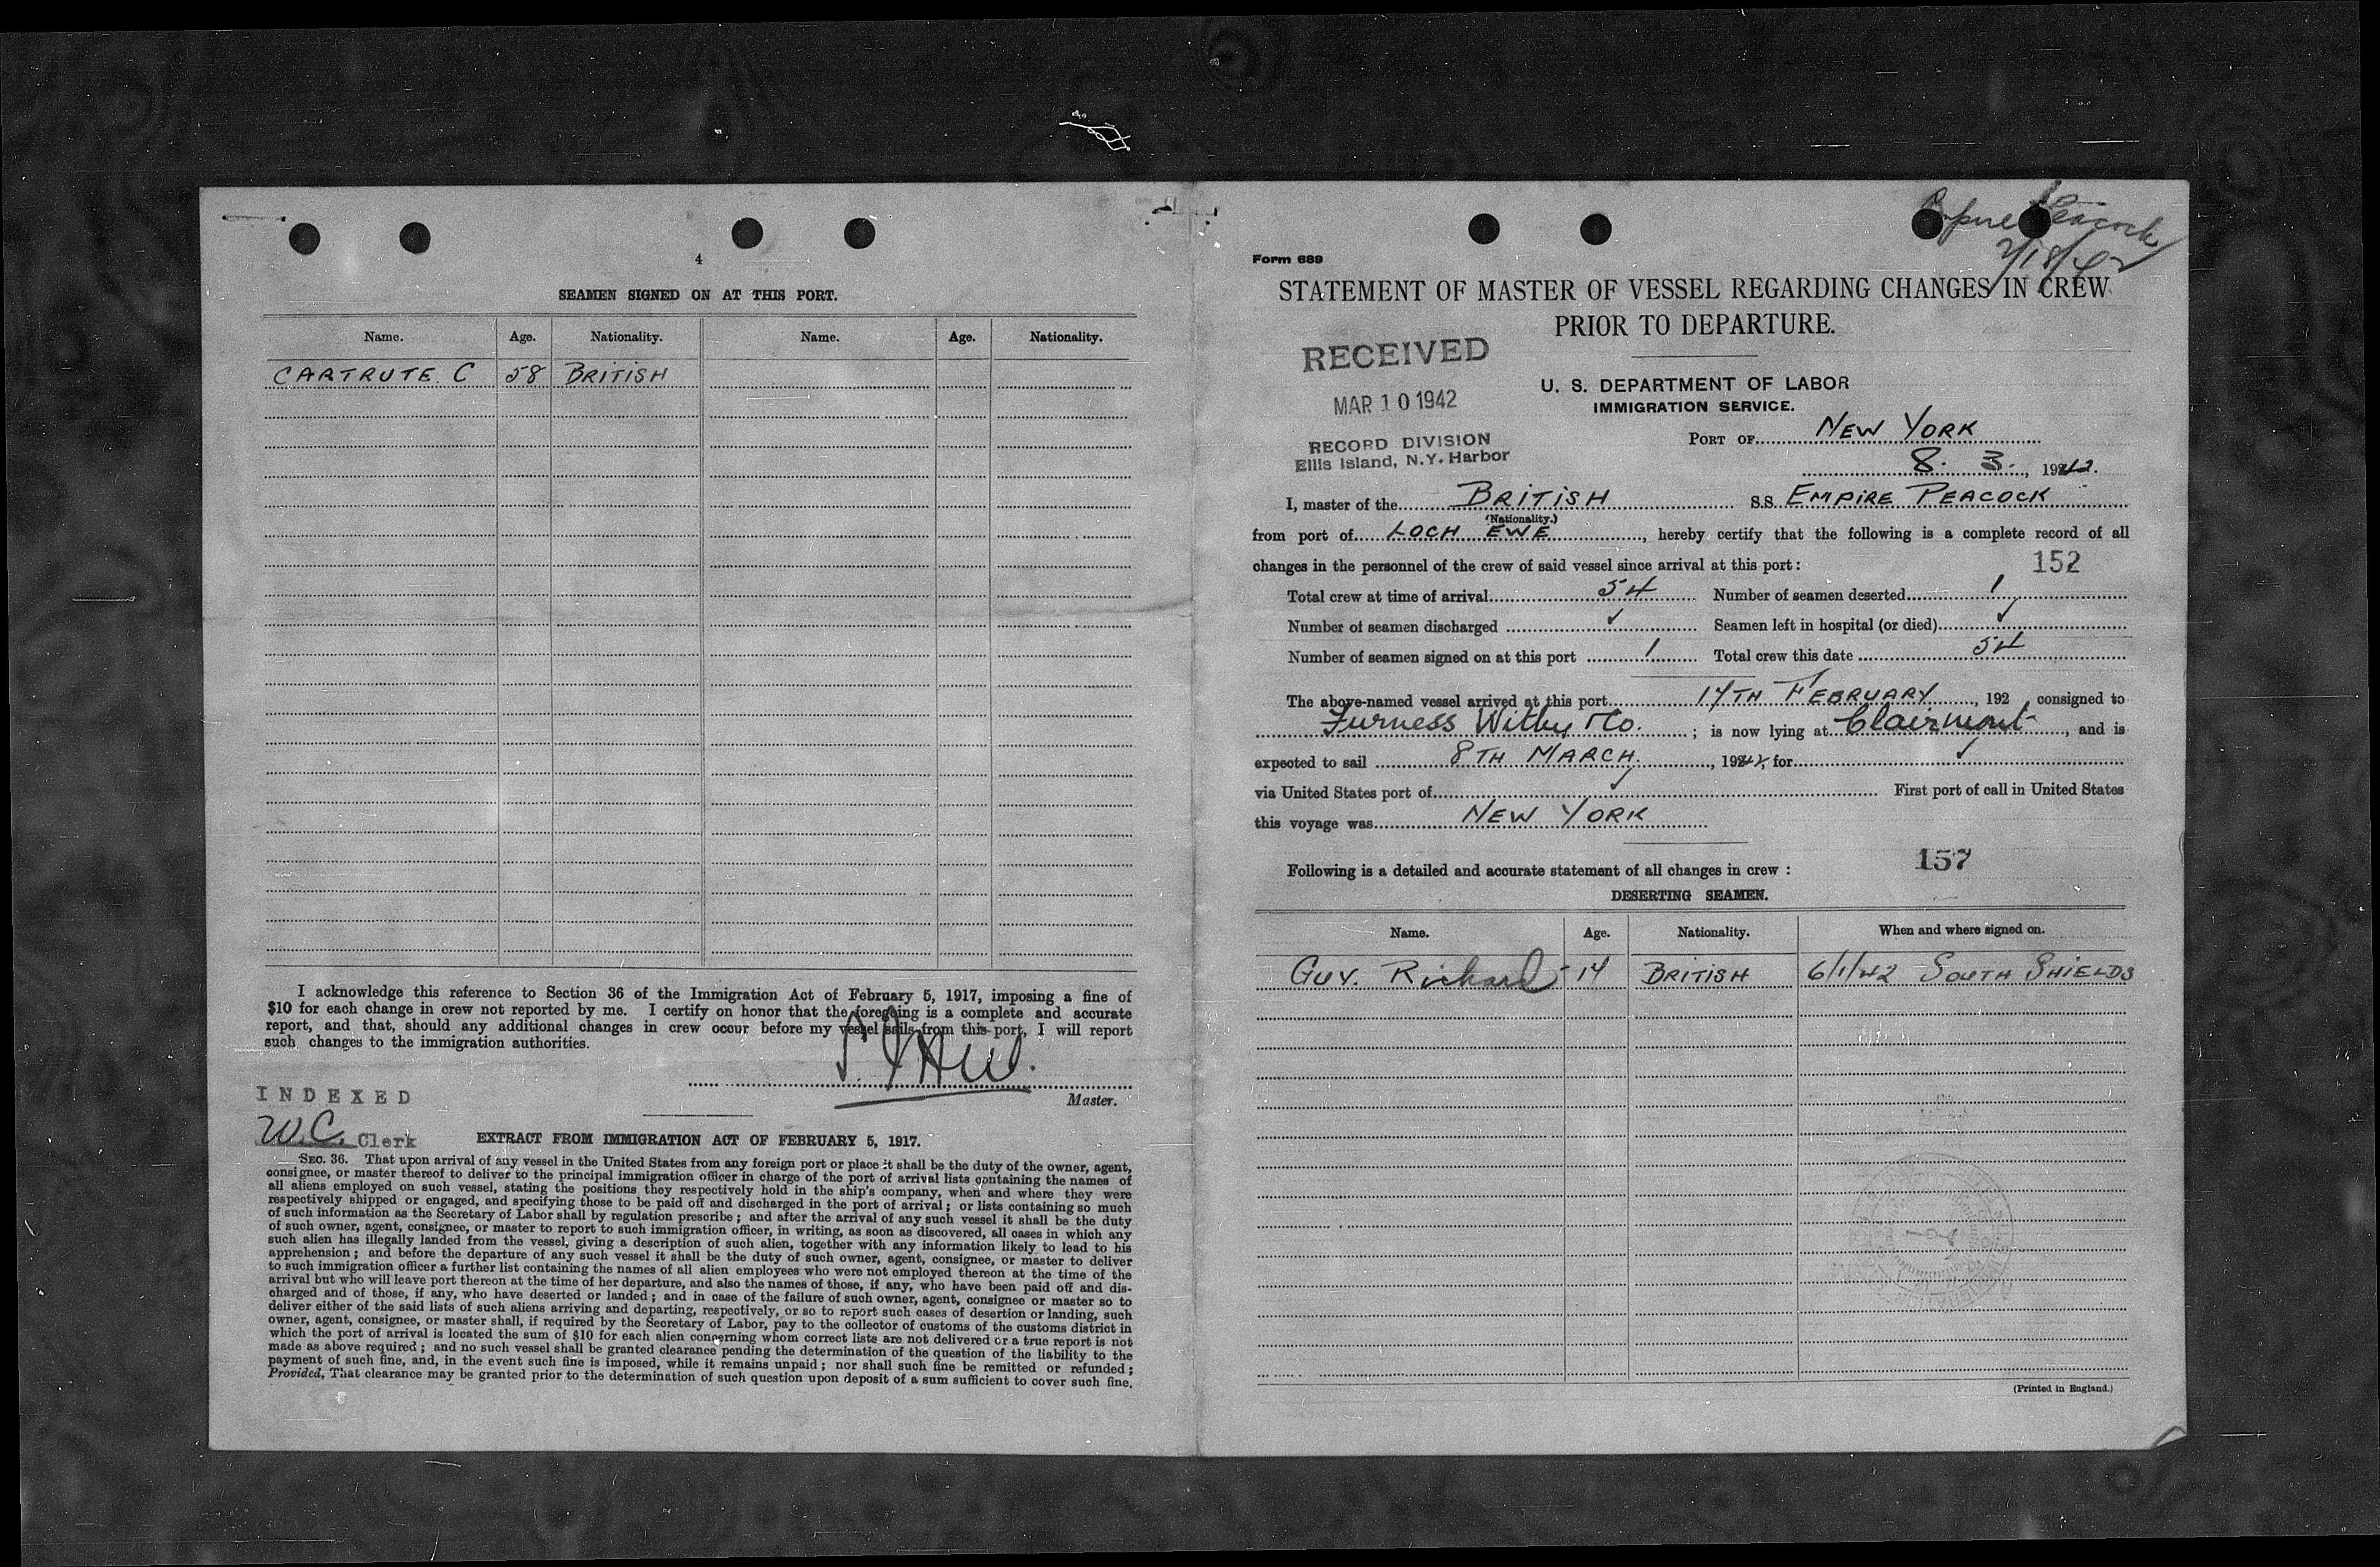 4
SEAMEN SIGNED ON AT THIS PORT.
Name. Age. Nationality. Name. Age. Nationality.
CARTRUTE. C 58 BRITISH
I acknowledge this reference to Section 36 of the Immigration Act of February 5, 1917, imposing a fine of
$10 for each change in crew not reported by me. I certify on honor that the foregoing is a complete and accurate
report, and that, should any additional changes in crew occur before my vessel sails from this port, I will report
such changes to the immigration authorities.
Master.
INDEXED
W.C. Clerk
EXTRACT FROM IMMIGRATION ACT OF FEBRUARY 5, 1917.
SEC. 36. That upon arrival of any vessel in the United States from any foreign port or place it shall be the duty of the owner, agent,
consignee, or master thereof to deliver to the principal immigration officer in charge of the port of arrival lists containing the names of
all aliens employed on such vessel, stating the positions they respectively hold in the ship's company, when and where they were
respectively shipped or engaged, and specifying those to be paid off and discharged in the port of arrival; or lists containing so much
of such information as the Secretary of Labor shall by regulation prescribe; and after the arrival of any such vessel it shall be the duty
of such owner, agent, consignee, or master to report to such immigration officer, in writing, as soon as discovered, all cases in which any
such alien has illegally landed from the vessel, giving a description of such alien, together with any information likely to lead to his
apprehension; and before the departure of any such vessel it shall be the duty of such owner, agent, consignee, or master to deliver
to such immigration officer a further list containing the names of all alien employees who were not employed thereon at the time of the
arrival but who will leave port thereon at the time of her departure, and also the names of those, if any, who have been paid off and dis-
charged and of those, if any, who have deserted or landed; and in case of the failure of such owner, agent, consignee or master so to
deliver either of the said lists of such aliens arriving and departing, respectively, or so to report such cases of desertion or landing, such
owner, agent, consignee, or master shall, if required by the Secretary of Labor, pay to the collector of customs of the customs district in
which the port of arrival is located the sum of $10 for each alien concerning whom correct lists are not delivered or a true report is not
made as above required; and no such vessel shall be granted clearance pending the determination of the question of the liability to the
payment of such fine, and, in the event such fine is imposed, while it remains unpaid; nor shall such fine be remitted or refunded;
Provided, That clearance may be granted prior to the determination of such question upon deposit of a sum sufficient to cover such fine.
Empire Peacock
2/18/42
Form 689
STATEMENT OF MASTER OF VESSEL REGARDING CHANGES IN CREW
PRIOR TO DEPARTURE.
RECEIVED
MAR 10 1942
RECORD DIVISION
Ellis Island, N.Y. Harbor
U. S. DEPARTMENT OF LABOR
IMMIGRATION SERVICE.
PORT OF NEW YORK
8. 3. , 1942.
I, master of the BRITISH S.S. EMPIRE PEACOCK
(Nationality.)
from port of LOCH EWE, hereby certify that the following is a complete record of all
changes in the personnel of the crew of said vessel since arrival at this port:
152
Total crew at time of arrival 54 Number of seamen deserted 1
Number of seamen discharged ✓ Seamen left in hospital (or died) ✓
Number of seamen signed on at this port 1 Total crew this date 54
The above-named vessel arrived at this port 17TH FEBRUARY, 192 consigned to
Furness Withy & Co. ; is now lying at Clairmont, and is
expected to sail 8TH MARCH, 1942, for ✓
via United States port of ✓ First port of call in United States
this voyage was NEW YORK
157
Following is a detailed and accurate statement of all changes in crew:
DESERTING SEAMEN.
Name. Age. Nationality. When and where signed on.
GUY. Richard 17 BRITISH 6/1/42 SOUTH SHIELDS
(Printed in England.)